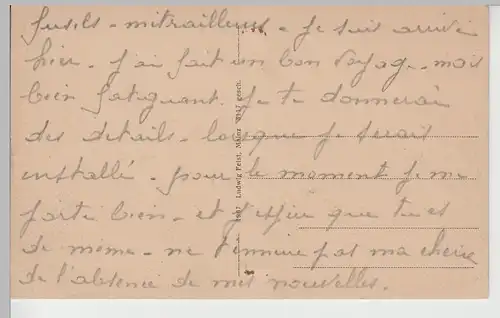 fusils - mitrailleurs - Je suis arrivé
hier - j'ai fait un bon voyage - mais
bien fatiguant. Je te donnerai
des details - lorsque je serais
installé - pour le moment je me
porte bien - et j'espère que tu es
de même - ne t'ennuie pas ma cherie
de l'absence de mes nouvelles.
Ludwig Feist, Mainz gesch.